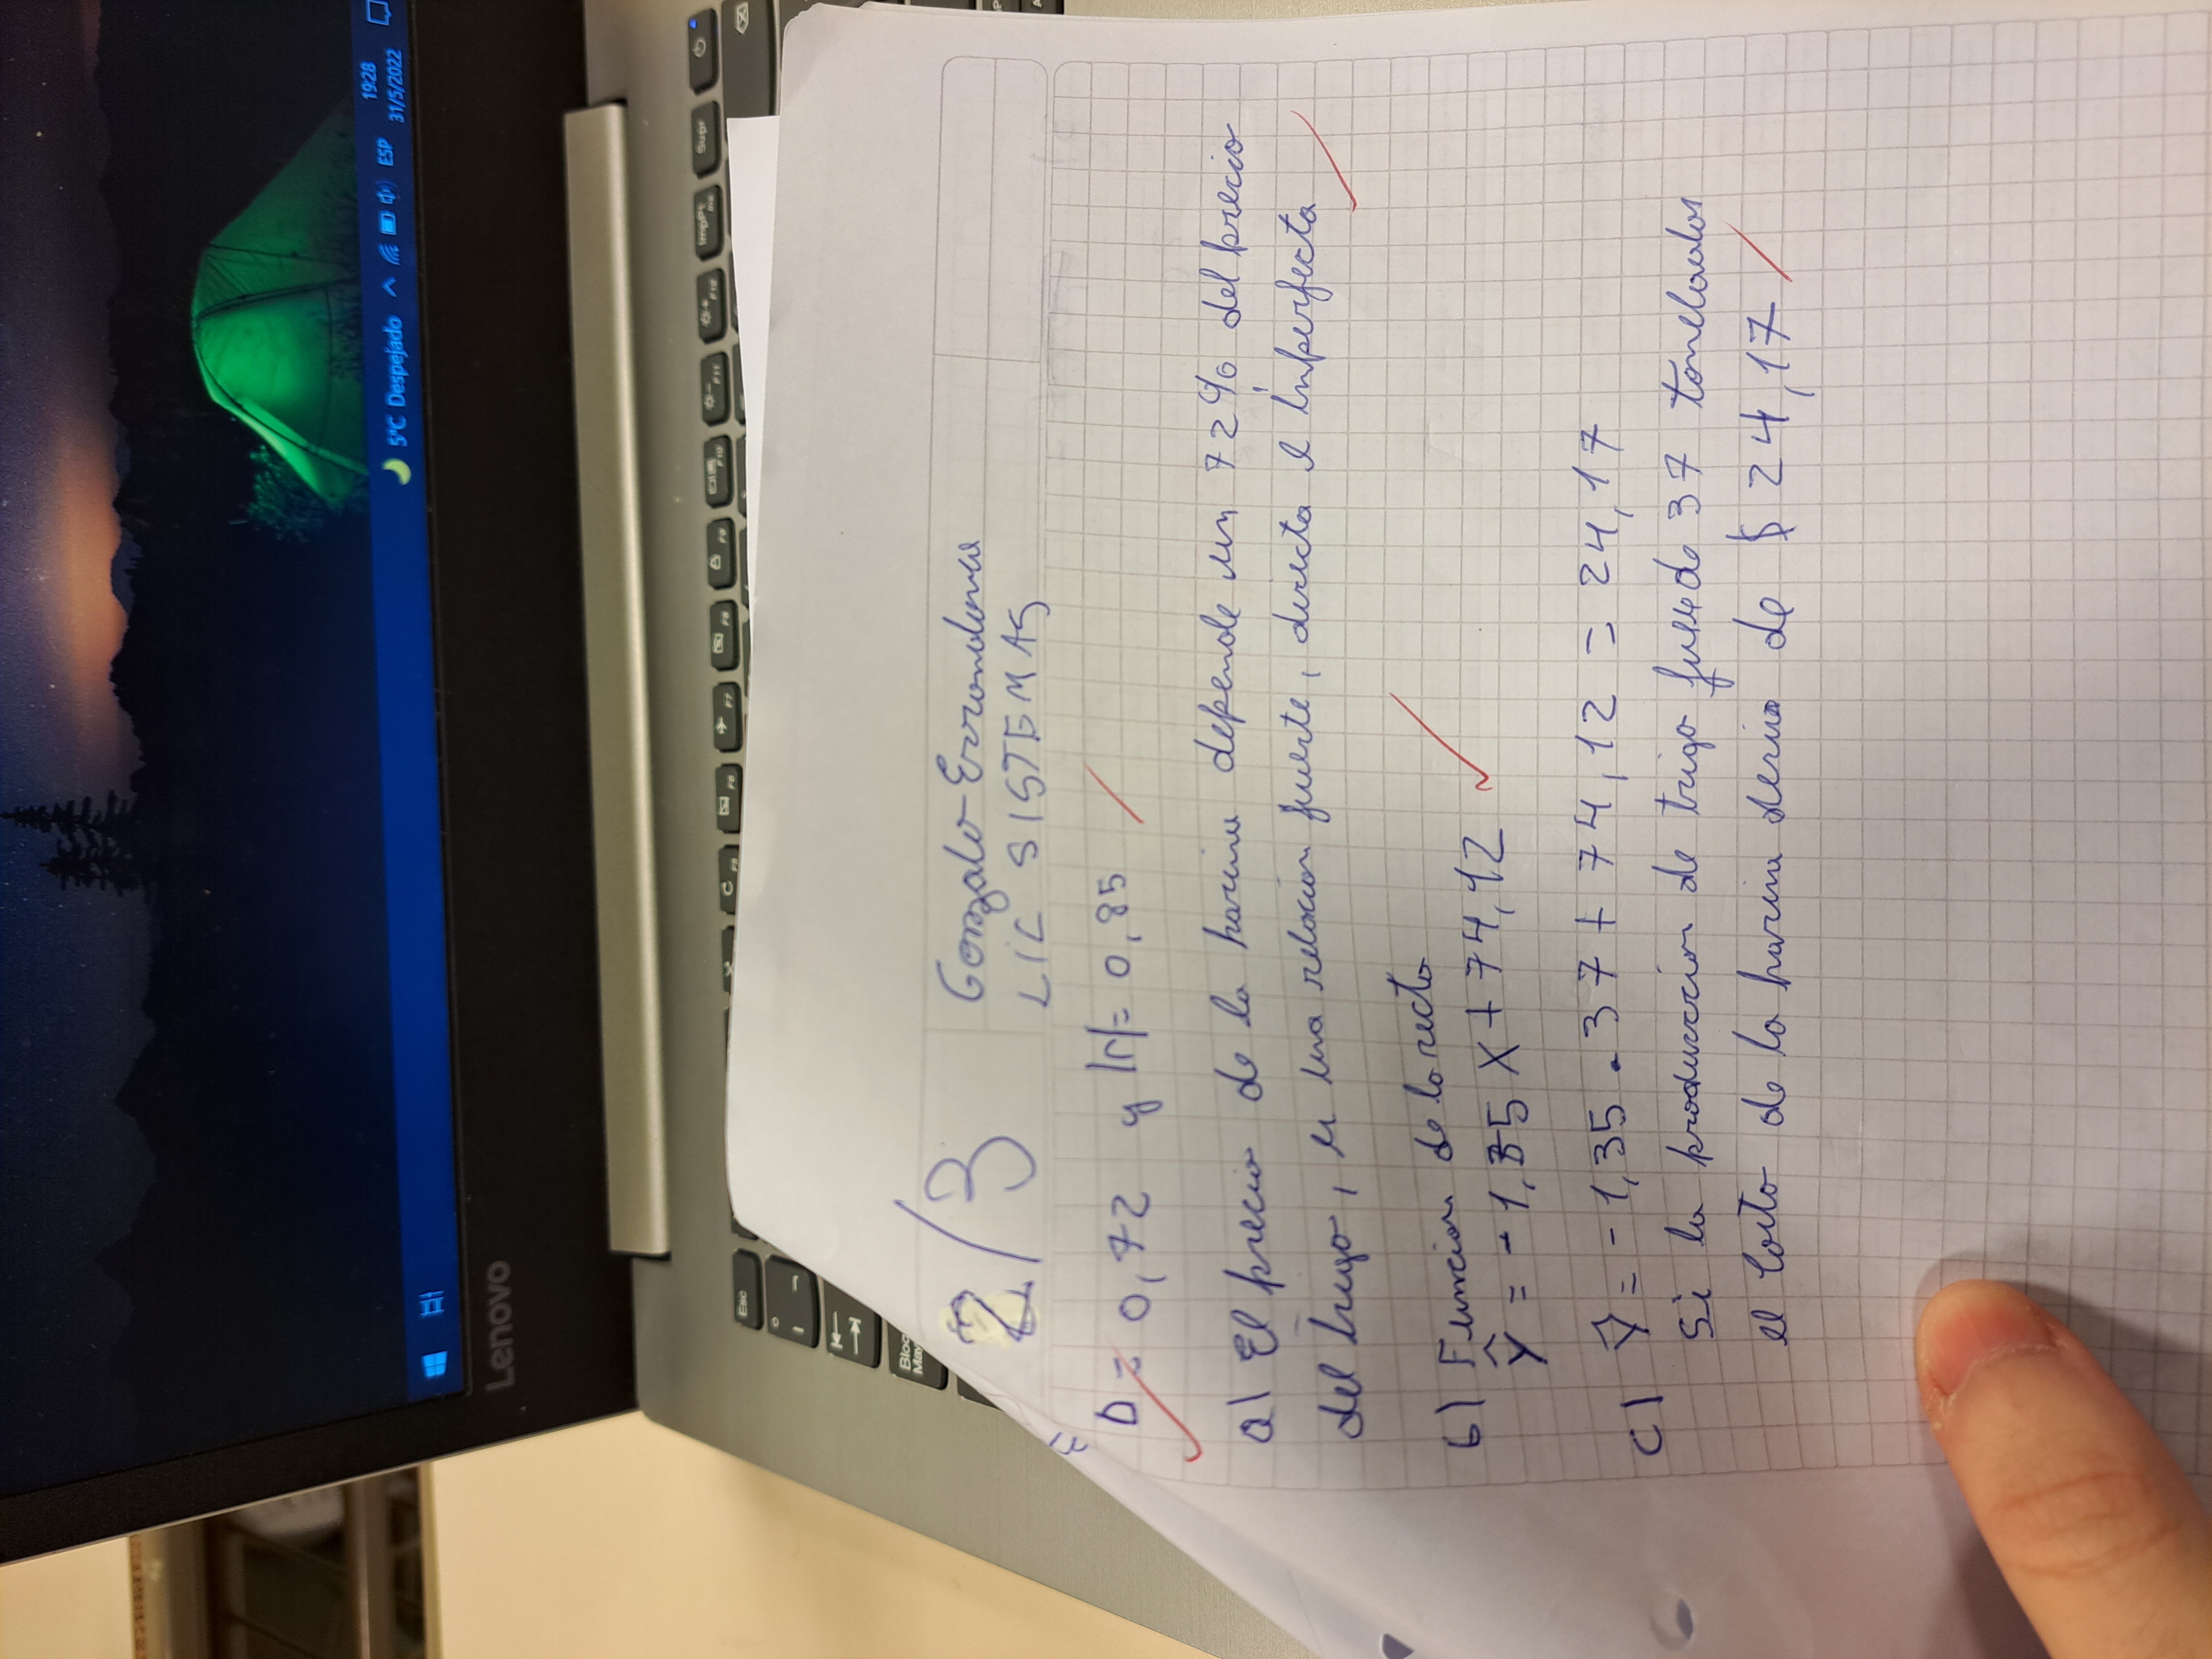 5°C Despejado
ESP
19:28
31/5/2022
Lenovo
Esc
F5
F6
F7
F8
F9
F10
F11
F12
ImpPt
Ins
Supr
Bloq
May
2/3
Gonzalo Errandonea
LIC SISTEMAS
D = 0,72 y |r|= 0,85
a) El precio de la harina depende un 72% del precio
del trigo, es una relacion fuerte, directa e imperfecta
b) Funcion de la recta
Ŷ = -1,35 X + 74,12
c) Ŷ = -1,35 . 37 + 74,12 = 24,17
Si la produccion de trigo fuese de 37 toneladas
el costo de la harina seria de $ 24,17